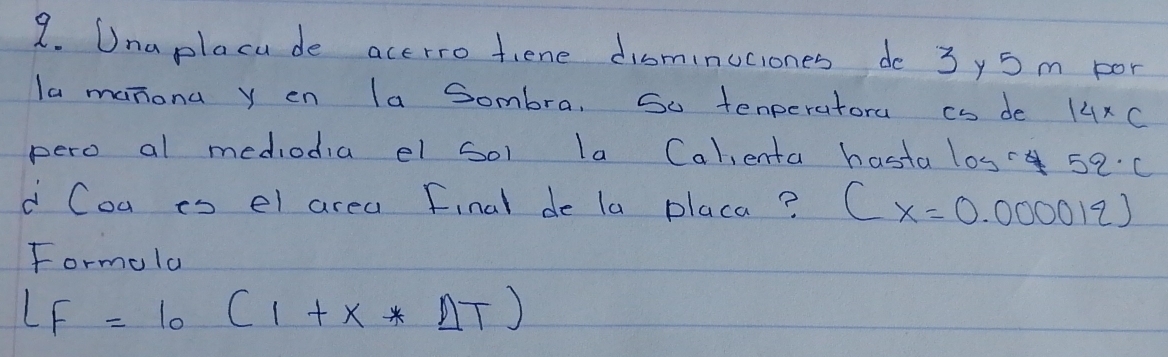 2. Una placa de acerro tiene disminuciones de 3 y 5 m por
la mañona y en la Sombra. Su tenperatora es de 14° C
pero al mediodia el Sol la Calienta hasta los 52°C
¿ Coa es el area Final de la placa? (x=0.000012)
Formula
LF = lo (1 + x * ΔT)